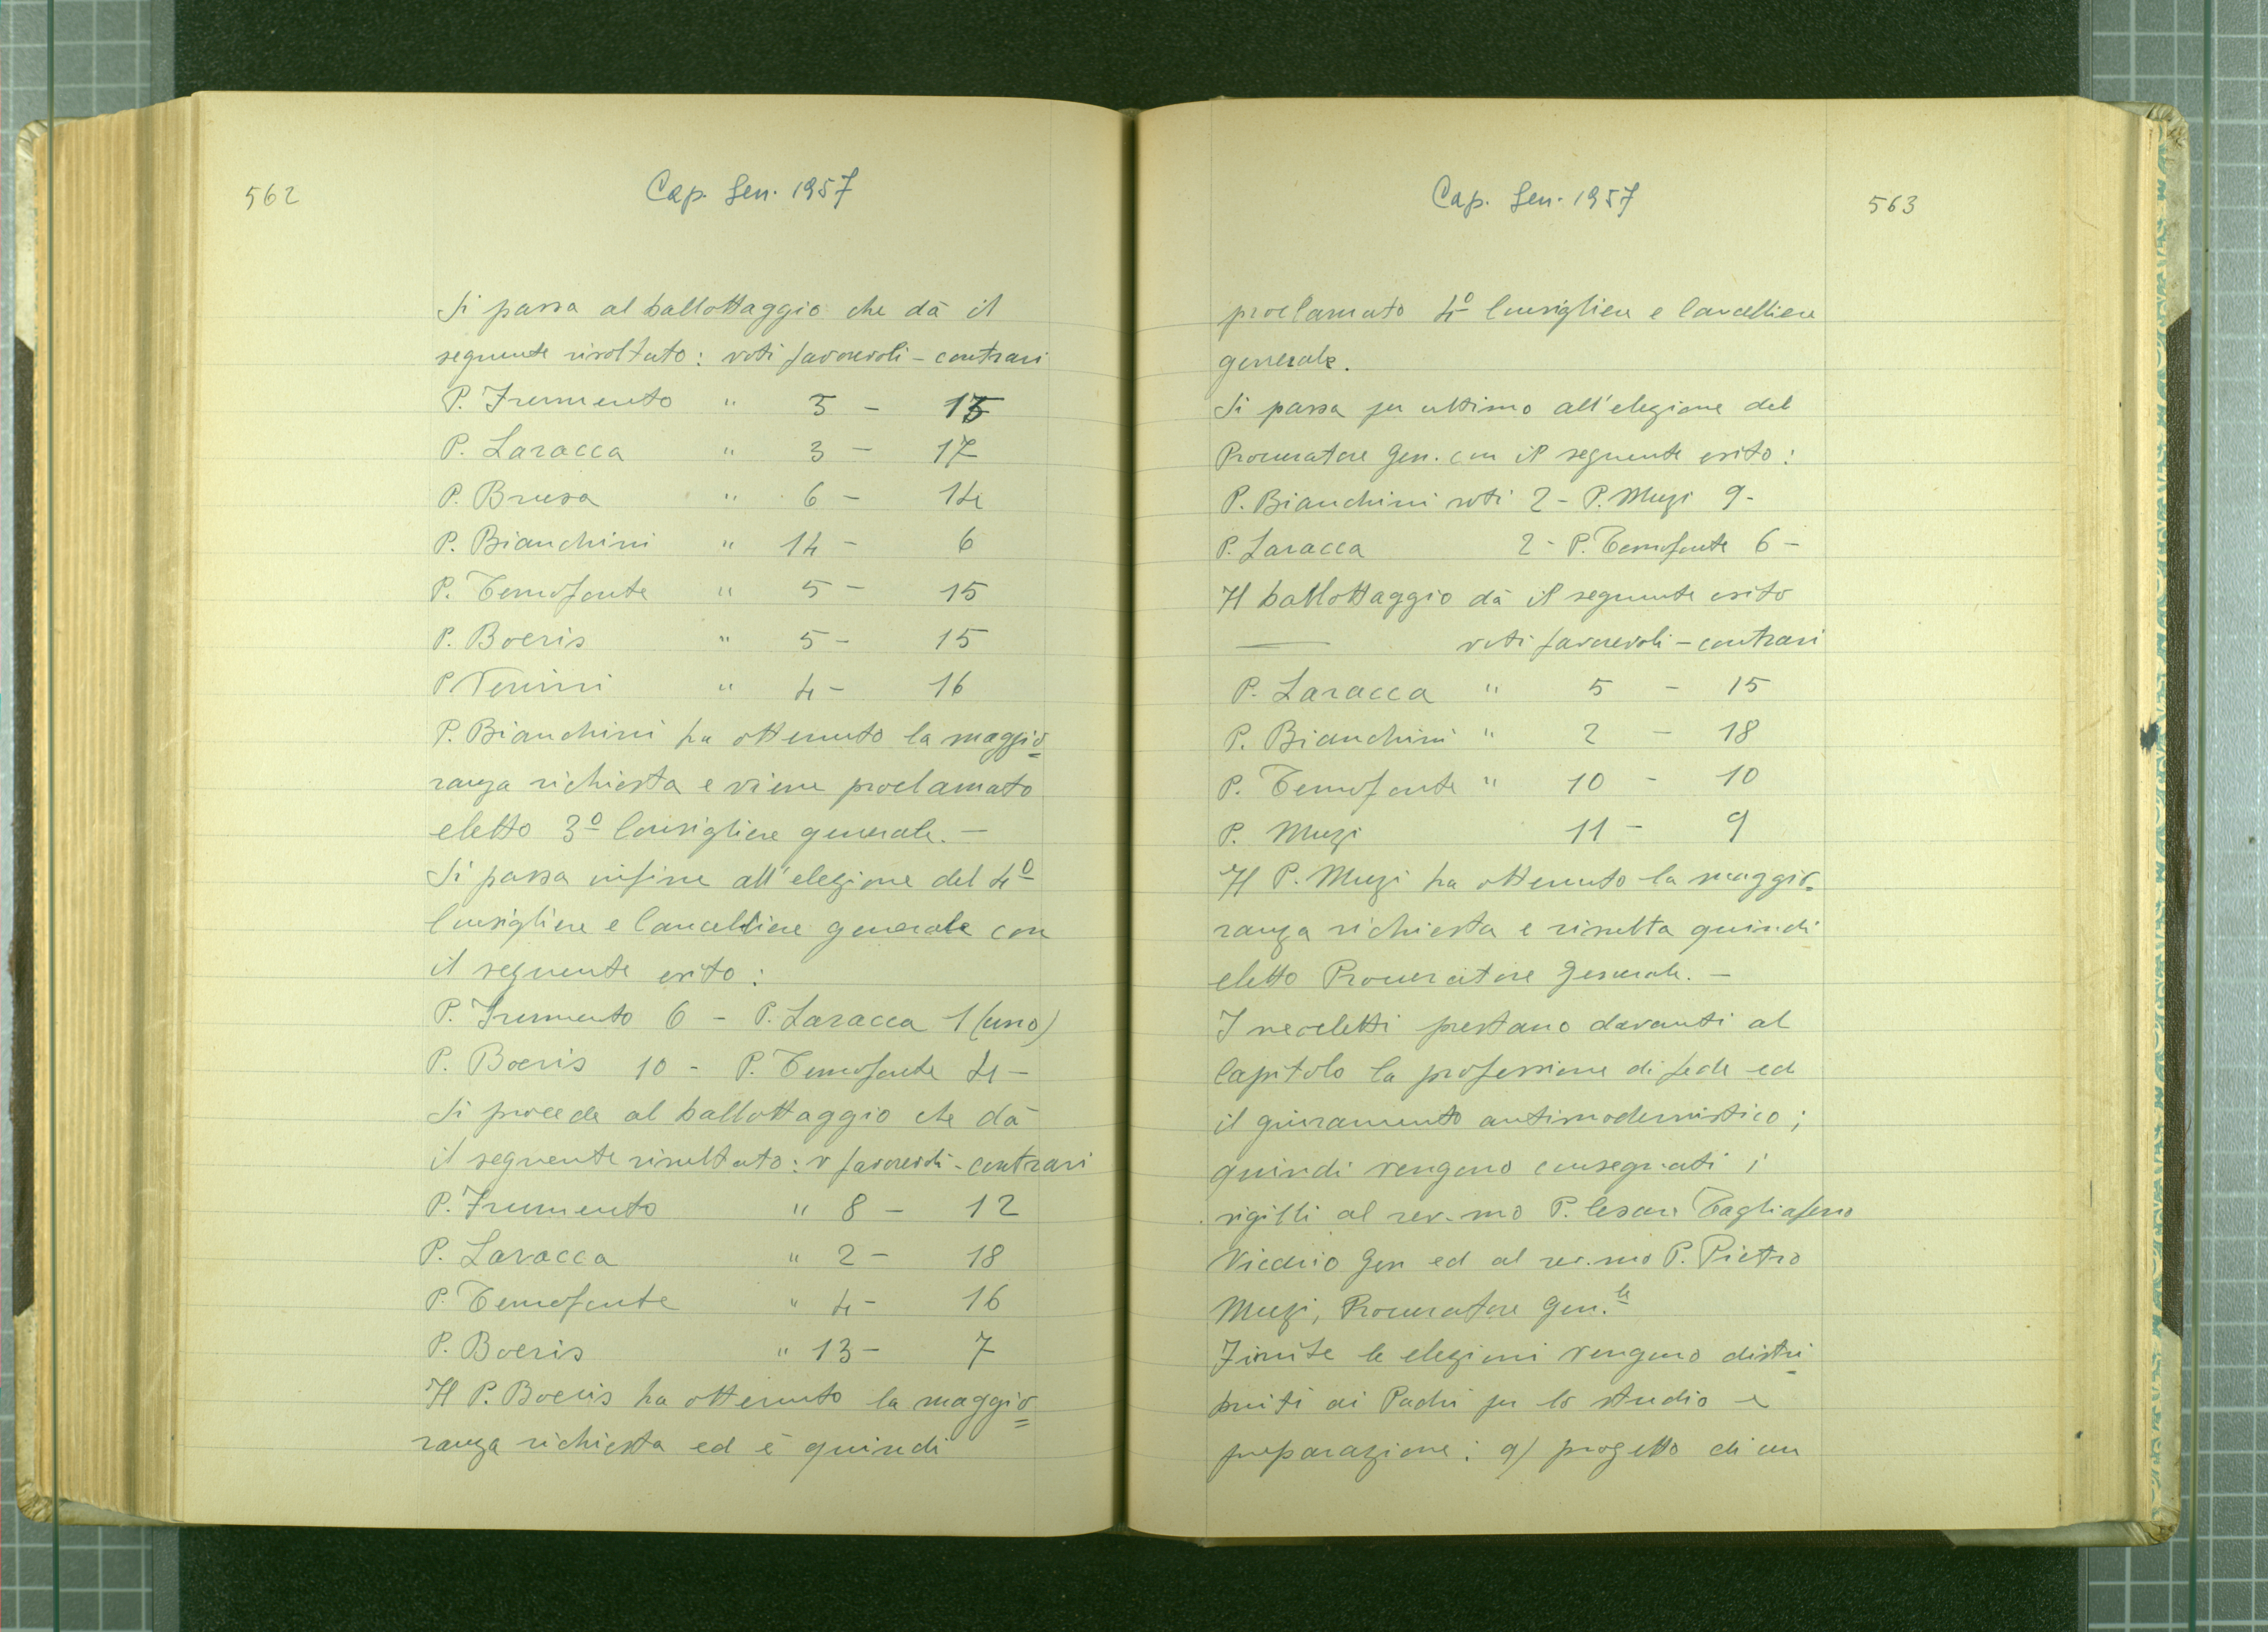 562
Cap. Gen. 1957
Si passa al ballottaggio che dà il
seguente risoltato: voti favorevoli - contrari
P. Frumento " 5 - 15
P. Laracca " 3 - 17
P. Brusa " 6 - 14
P. Bianchini " 14 - 6
P. Temofonte " 5 - 15
P. Boeris " 5 - 15
P. Venini " 4 - 16
P. Bianchini ha ottenuto la maggio=
ranza richiesta e viene proclamato
eletto 3º Consigliere generale. -
Si passa infine all'elezione del 4º
Consigliere e Cancelliere generale con
il seguente esito:
P. Frumento 6 - P. Laracca 1 (uno)
P. Boeris 10 - P. Temofonte 4 -
Si procede al ballottaggio che dà
il seguente risultato: v favorevoli - contrari
P. Frumento " 8 - 12
P. Laracca " 2 - 18
P. Temofonte " 4 - 16
P. Boeris " 13 - 7
Il P. Boeris ha ottenuto la maggio=
ranza richiesta ed è quindi
Cap. Gen. 1957
563
proclamato 4º Consigliere e Cancelliere
generale.
Si passa per ultimo all'elezione del
Procuratore Gen. con il seguente esito:
P. Bianchini voti 2 - P. Muzi 9 -
P. Laracca 2 - P. Temofonte 6 -
Il ballottaggio dà il seguente esito
— voti favorevoli - contrari
P. Laracca " 5 - 15
P. Bianchini " 2 - 18
P. Temofonte " 10 - 10
P. Muzi 11 - 9
Il P. Muzi ha ottenuto la maggio-
ranza richiesta e risulta quindi
eletto Procuratore Generale. -
I neoeletti prestano davanti al
Capitolo la professione di fede ed
il giuramento antimodernistico;
quindi vengono consegnati i
sigilli al rev.mo P. Cesare Tagliaferro
Vicario Gen ed al rev.mo P. Pietro
Muzi, Procuratore Gen.le
Finite le elezioni vengono distri-
buiti ai Padri per lo studio e
preparazione: a) progetto di un